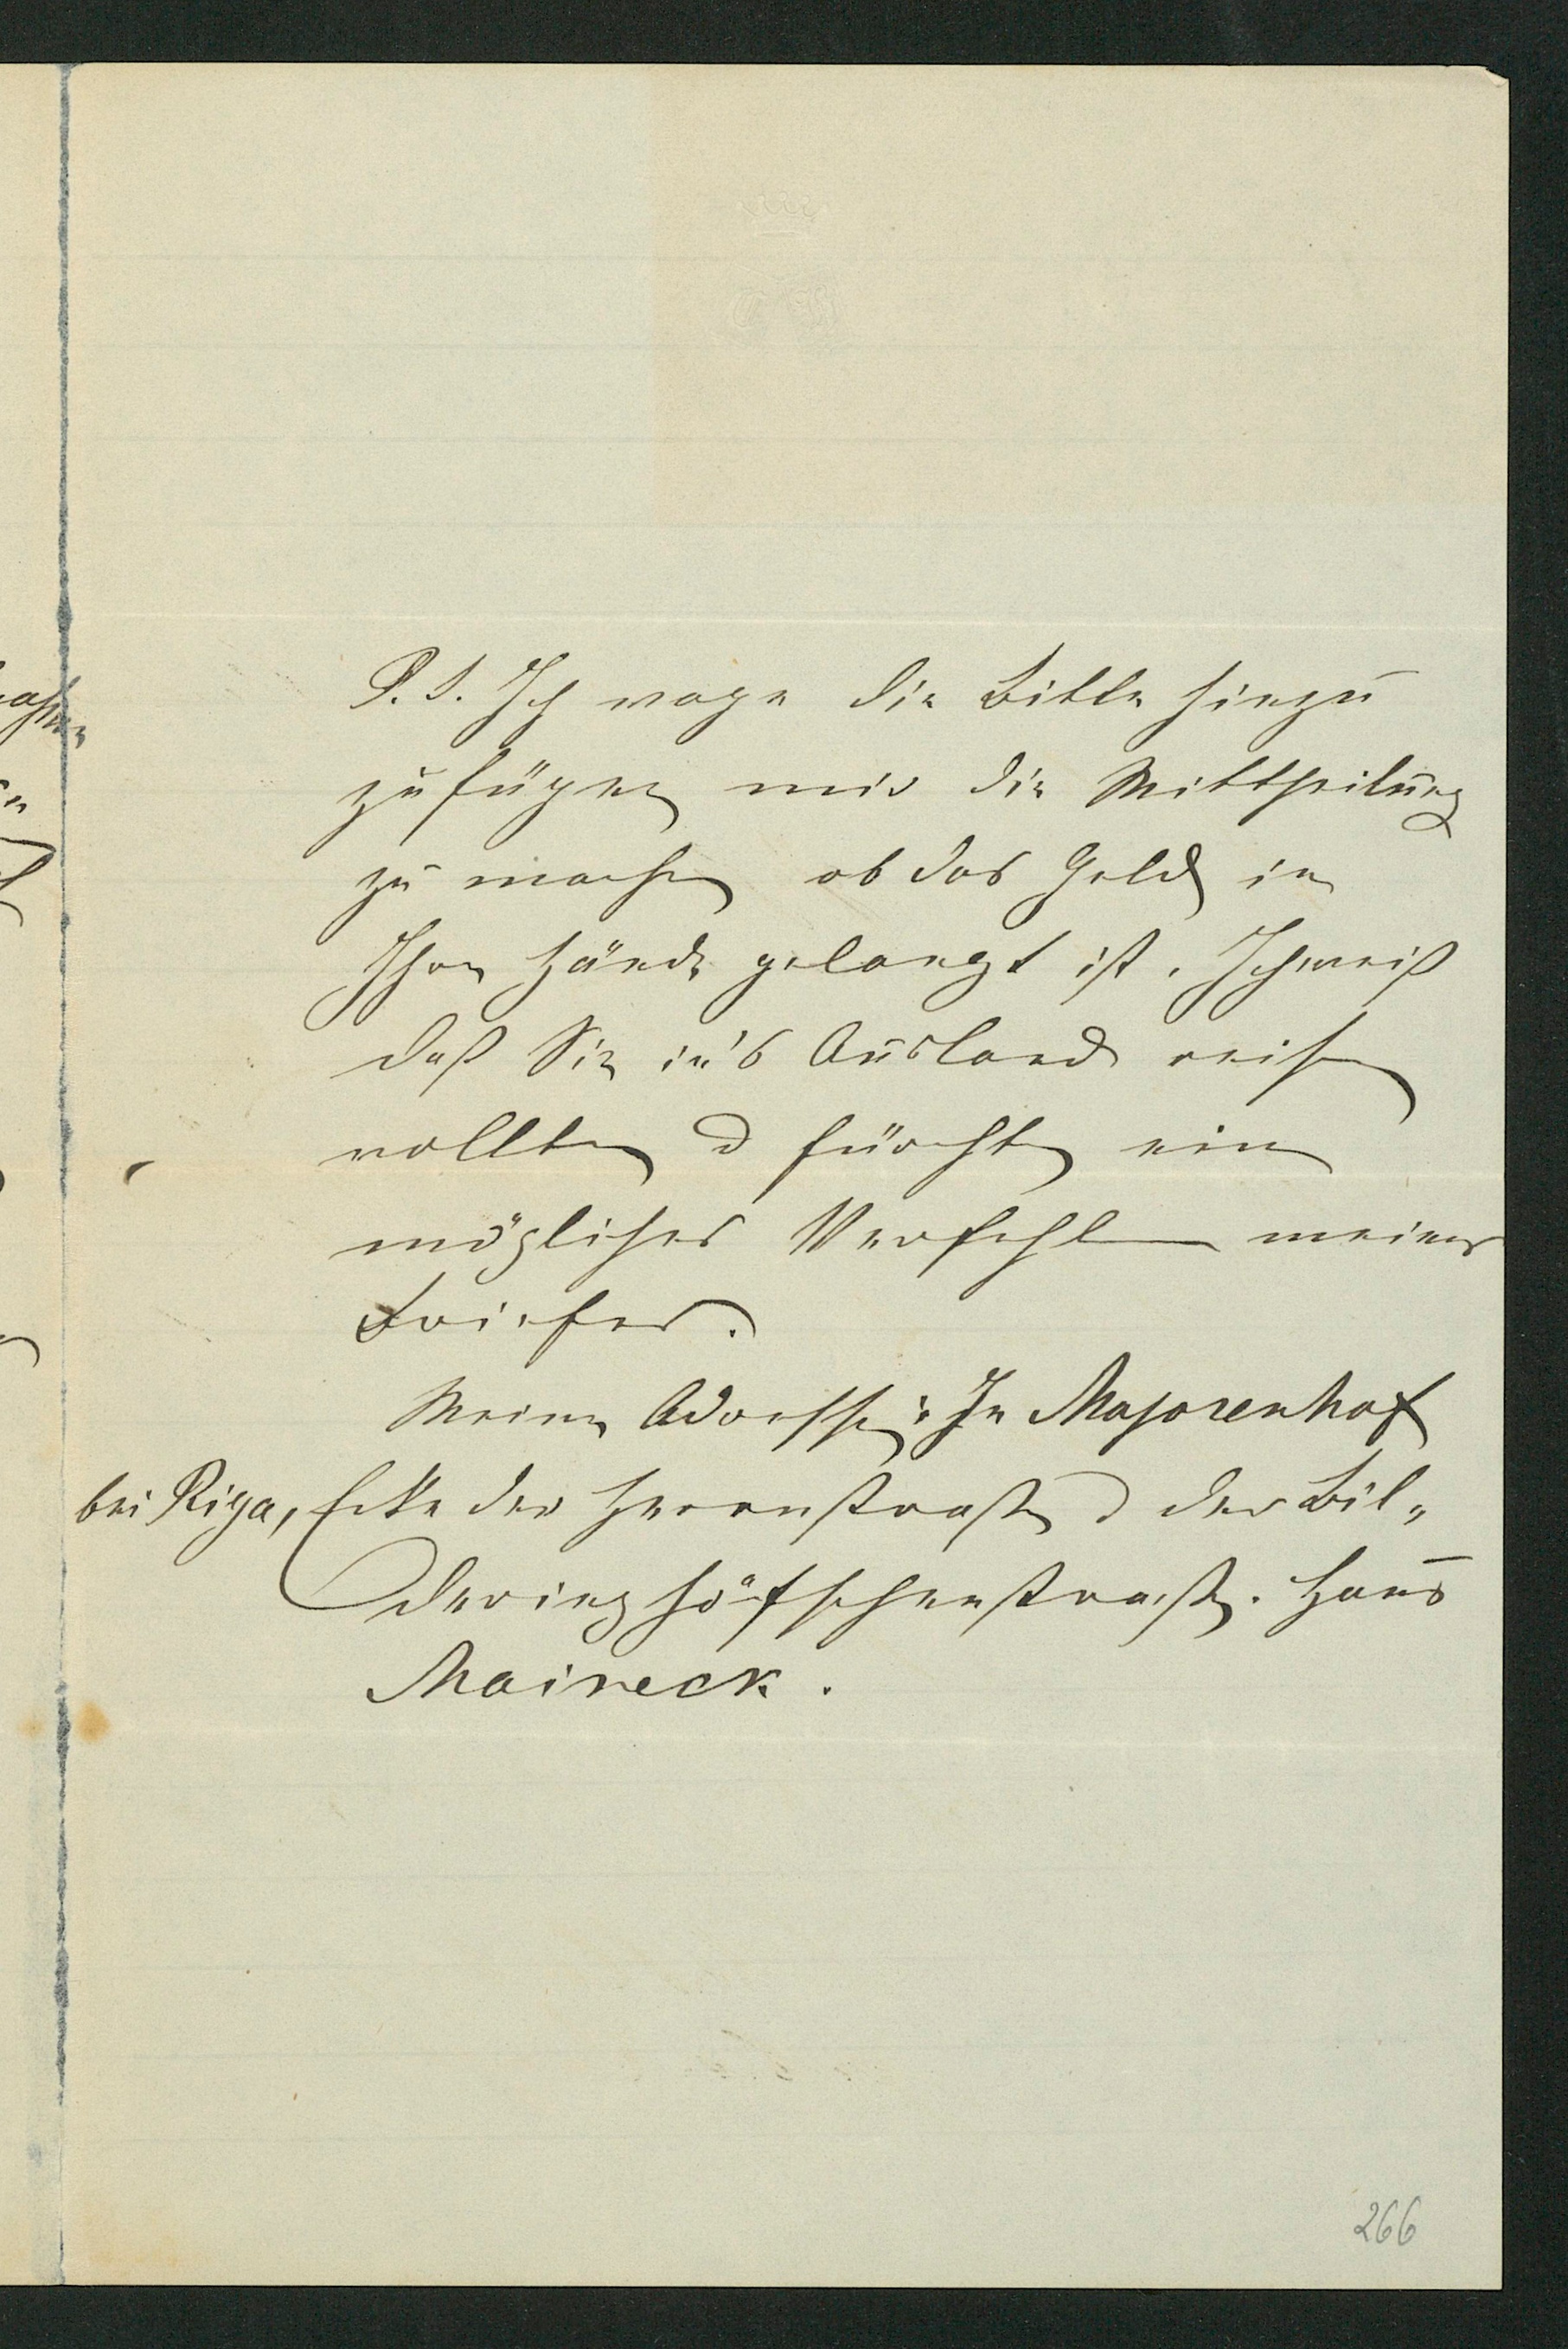 P. S. Ich wage die Bitte hinzu
zufügen mir die Mittheilung
zu machen ob das Geld in
Ihre Hände gelangt ist. Ich weiß
daß Sie in's Ausland reisen
wollten u fürchte ein
mögliches Verfehlen meines
Briefes.
Meine Adresse: In Majorenhof
bei Riga, Ecke der Herrenstraße u der Bil-
deringshöfschenstraße. Haus
Maineck.
266